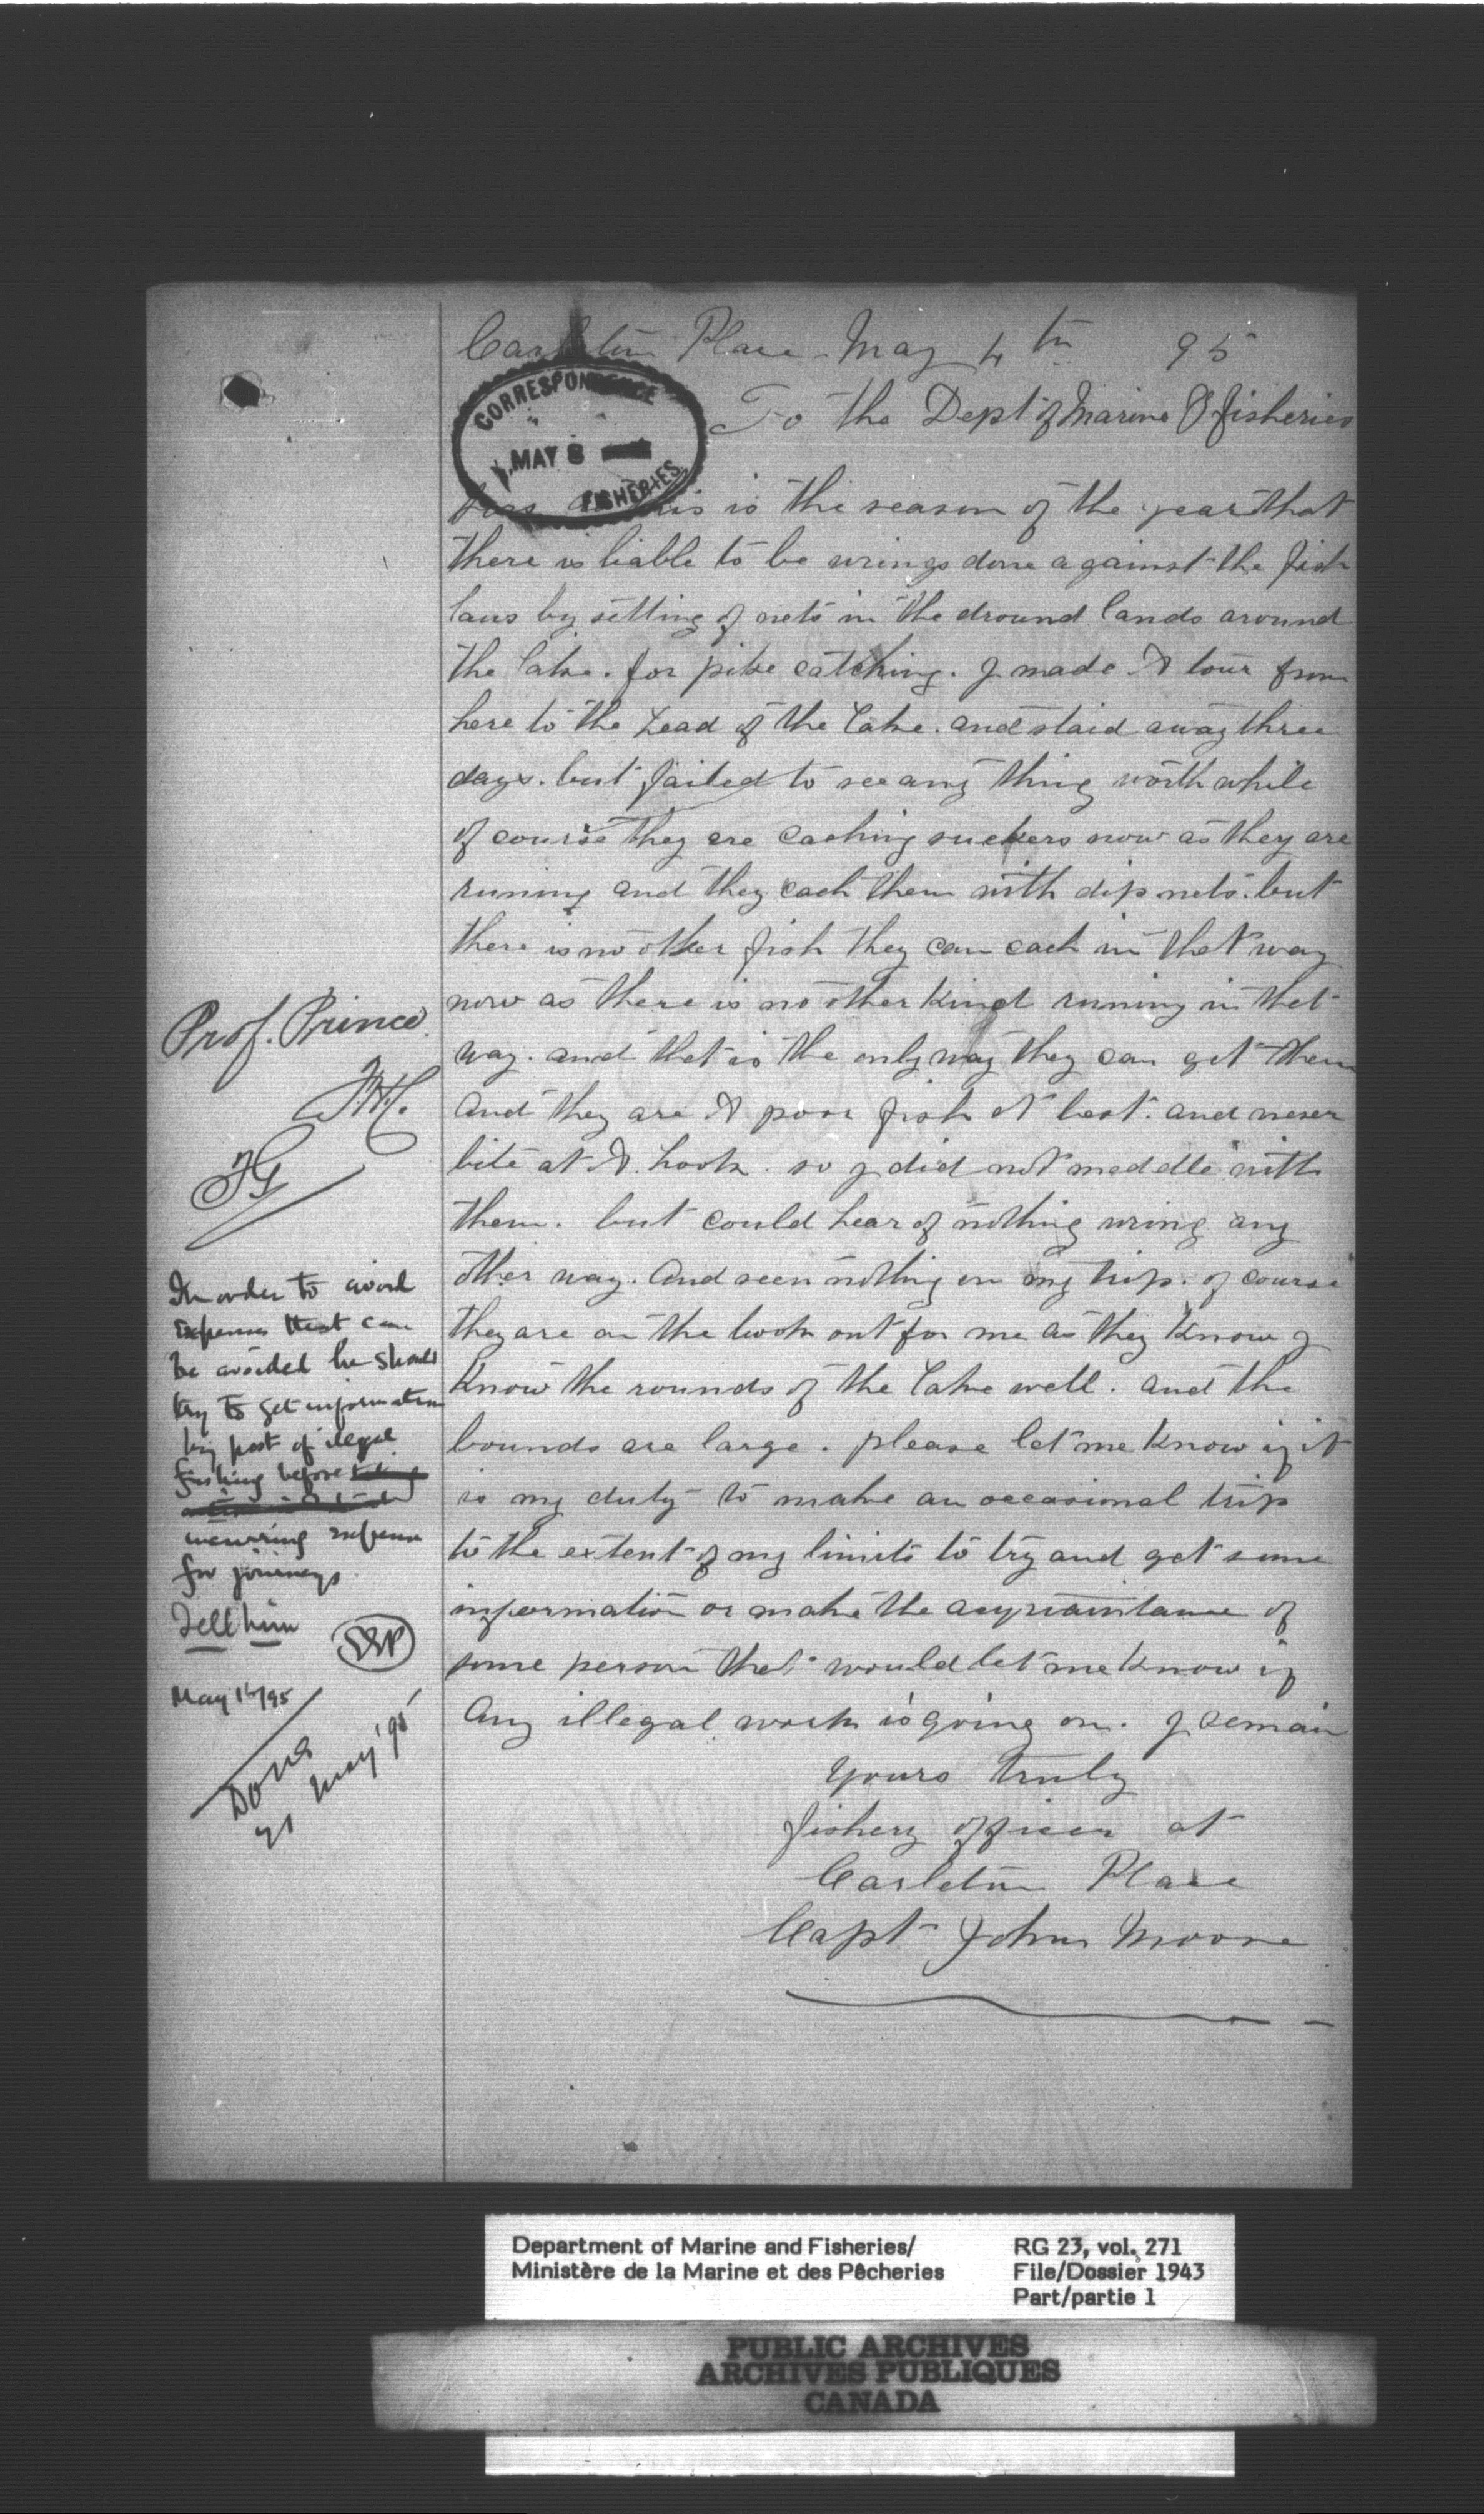 Carleton Place May 4th 95
To the Dept of Marine & fisheries
CORRESPONDENCE
MAY 8
FISHERIES
this is the season of the year that
there is liable to be wrings done against the fish
laws by setting of nets in the dround lands around
the lake. for pike catching. I made A tour from
here to the head of the lake. and staid away three
days. but failed to see any thing worth while
of course they are caching suckers now as they are
runing and they cach them with dip nets. but
there is no other fish they can cach in that way
now as there is no other kind runing in thet
way. and thet is the only way they can get them
and they are A poor fish at best. and never
bite at A hook. so I did not meddle with
them. but could hear of nothing wring any
other way. And seen nothing on my trip. of course
they are on the look out for me as they know I
know the rounds of the lake well. and the
bounds are large. please let me know if it
is my duty to make an occasional trip
to the extent of my limits to try and get some
information or make the acquaintance of
some person thet would let me know if
any illegal work is going on. I remain
Yours truly
fishery officer at
Carleton Place
Capt John Moore
Prof. Prince
In order to avoid
expenses that can
be avoided he should
try to get information
by post of illegal
fishing before
incurring expense
for journeys
Tell him
May 15/95
Done
21 May '95
Department of Marine and Fisheries/
Ministère de la Marine et des Pêcheries
RG 23, vol. 271
File/Dossier 1943
Part/partie 1
PUBLIC ARCHIVES
ARCHIVES PUBLIQUES
CANADA